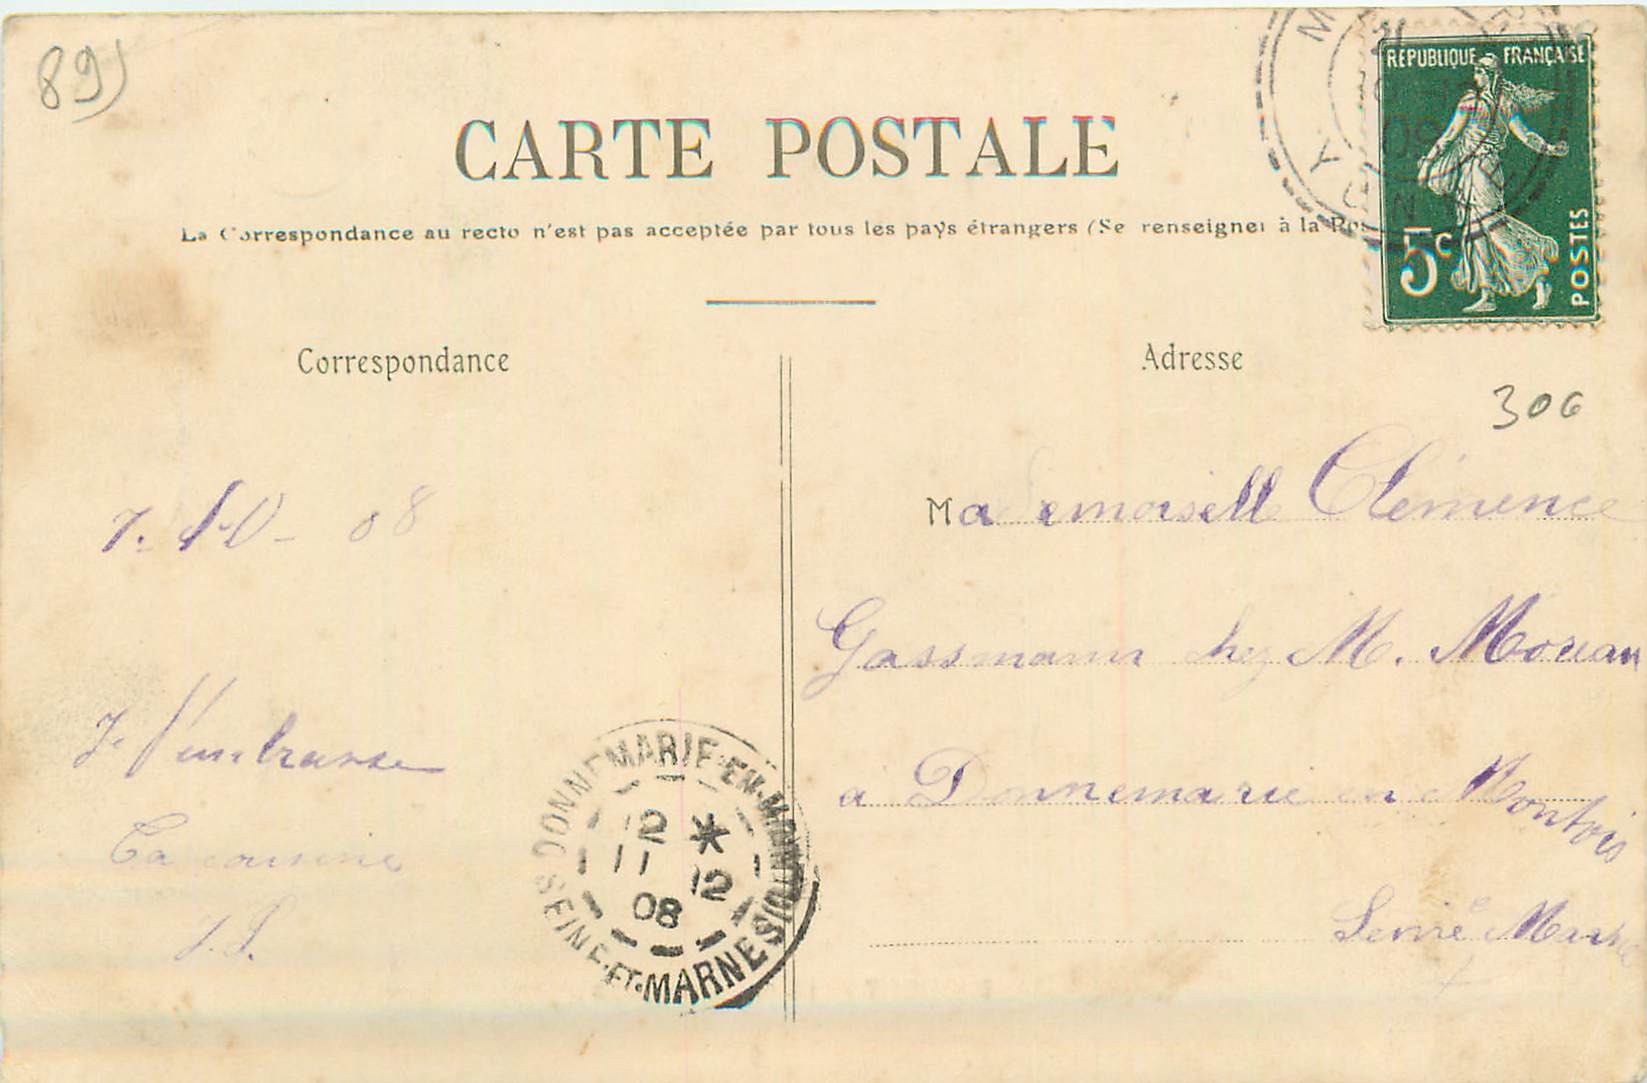 89)
CARTE POSTALE
La Correspondance au recto n'est pas acceptée par tous les pays étrangers (Se renseigner à la
RÉPUBLIQUE FRANÇAISE
5c
POSTES
Correspondance
Adresse
306
Mademoiselle Clémence
Gassmann chez M. Moreau
a Donnemarie en Montois
Seine Marne
08
t'embrasse
Ta cousine
DONNEMARIE-EN-MONTOIS
12 *
11 12
08
SEINE-ET-MARNE